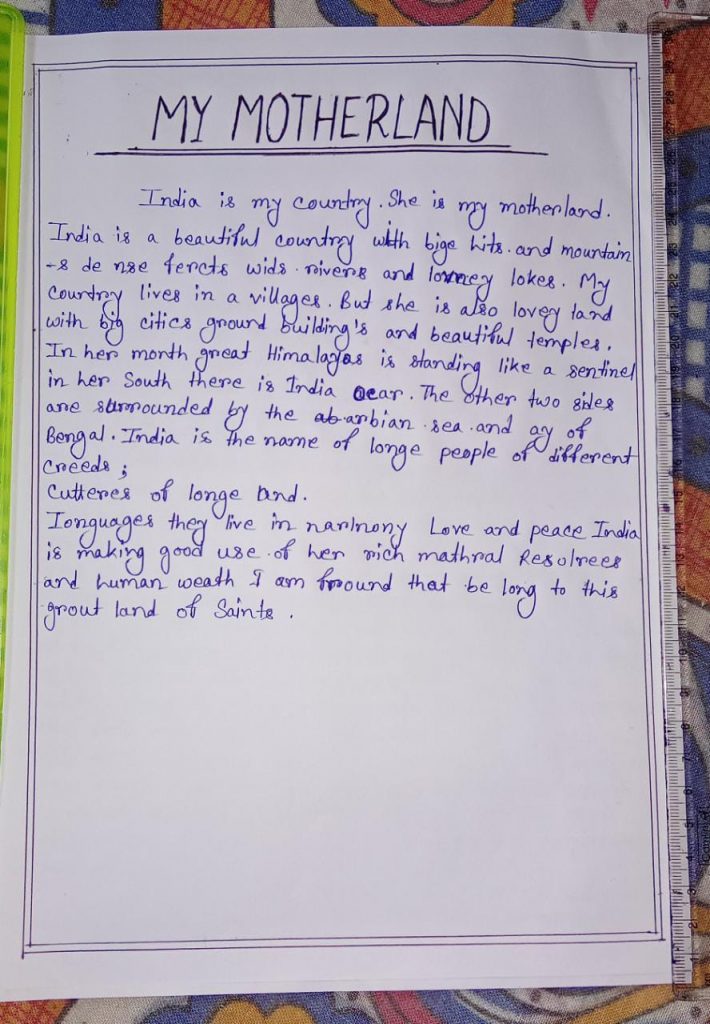 MY MOTHERLAND
India is my country. She is my motherland.
India is a beautiful country with bige hits. and mountain
-s de nse fercts wids. rivers and lovney lokes. My
country lives in a villages. But she is also lovey land
with big citics ground building's and beautiful temples.
In her month great Himalayas is standing like a sentinel
in her South there is India ocar. The other two sides
are surrounded by the ab-arbian sea. and ay of
Bengal. India is the name of longe people of different
creeds;
Cutteres of longe land.
Ionguages they live in narlnony Love and peace India
is making good use of her rich mathral Resolrees
and human weath I am fround that be long to this
grout land of Saints.